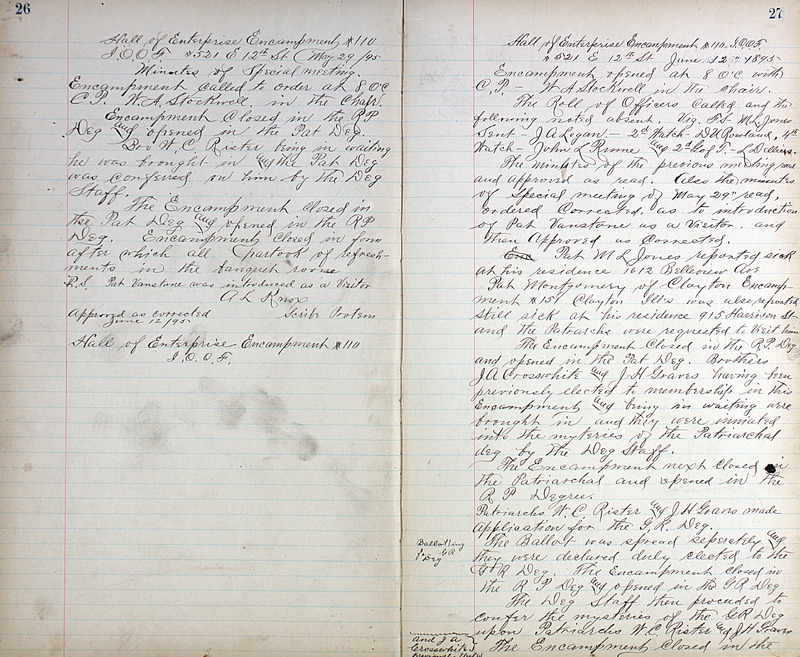 26
Hall of Enterprise Encampment #110
I.O.O.F. #521 E 12th St (May 29/95
Minutes of Special meeting.
Encampment called to order at 8 O'C
C.P. W.A. Stockwell, in the Chair.
Encampment Closed in the R.P
Deg and opened in the Pat Deg.
Bro W.C. Rister being in waiting
he was brought in and the Pat Deg
was conferred on him by the Deg
Staff.
The Encampment Closed in
the Pat Deg and opened in the R P
Deg. Encampment Closed in form
after which all partook of refresh-
ments in the banquet room
P.S. Pat Vanstone was introduced as a Visitor
A L Knox
Approved as corrected Scribe Protem
June 12/95.
Hall of Enterprise Encampment #110
I.O.O.F.
27
Hall of Enterprise Encampment #110 I.O.O.F.
#521 E 12th St June 12th 1895
Encampment opened at 8 O'C with
C.P. W A Stockwell in the chair.
The Roll of Officers Called and the
following noted absent. Viz. Pat M L Jones
Sent - J A Logan - 2d Watch - D V Rowland, 4th
Watch - John L Runne and 2d G of T. - L Dellius.
The Minutes of the previous meeting read
and approved as read. Also the minutes
of Special meeting of May 29th read,
ordered Corrected, as to introduction
of Pat Vanstone as a Visitor. and
then Approved as Corrected.
Enc Pat M L Jones reported sick
at his residence 1612 Belleview Ave
Pat Montgomery of Clayton Encamp-
ment #15 Clayton Ill's was also reported
still sick at his residence 915 Harrison St
and the Patriarchs were requested to Visit him
The Encampment Closed in the R.P Deg
and opened in the Pat Deg. Brothers
J A Crosswhite and J H Graves having been
previously elected to membership in this
Encampment and being in waiting were
brought in and they were initiated
into the mysteries of the Patriarchal
deg by the Deg Staff.
The Encampment next Closed in
the Patriarchal and opened in the
R P Degree.
Patriarchs W.C. Rister and J H Graves made
application for the G.R. Deg.
Ballotting The Ballot was spread seperately and
G R Deg they were declared duly elected to the
G R Deg. The Encampment closed in
the R P Deg and opened in the G R Deg
The Deg Staff then proceded to
confer the mysteries of the G.R Deg
and J A upon Patriarchs W.C Rister and J H Graves
Crosswhite The Encampment Closed in the